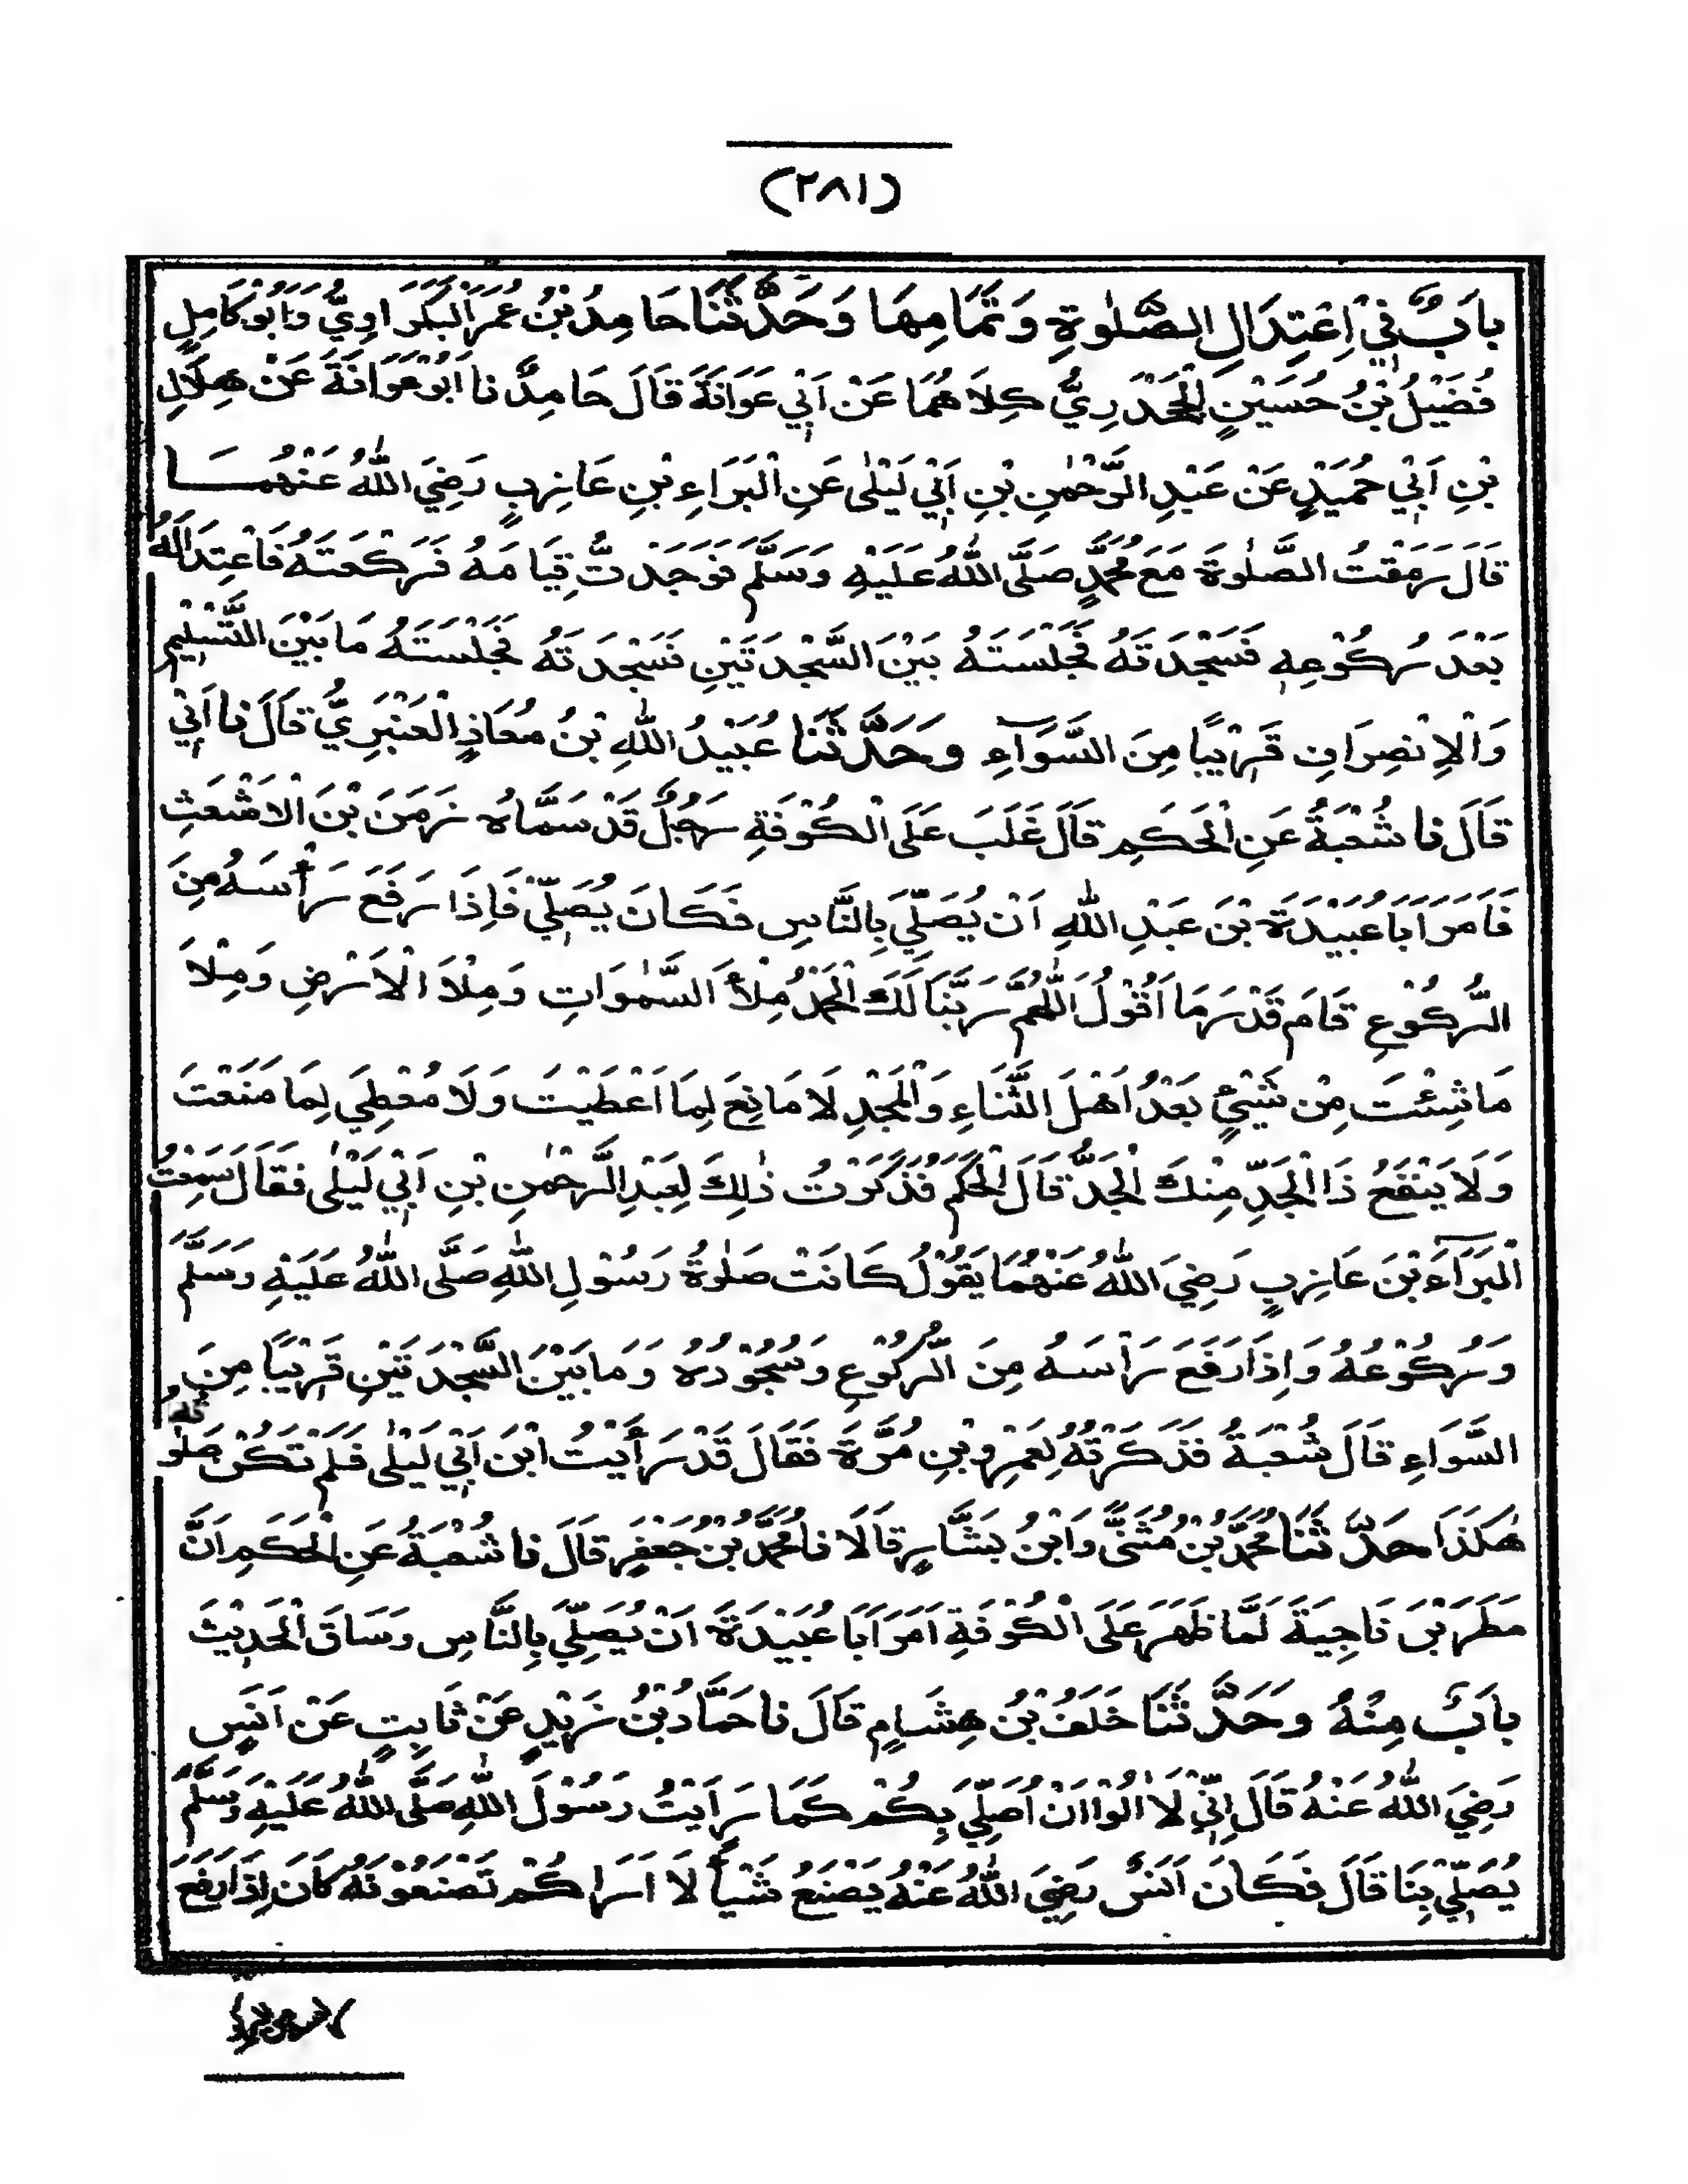 (٢٨١)
بَابٌ فِيْ اِعْتِدَالِ الصَّلٰوةِ وَتَمَامِهَا وَحَدَّثَنَا حَامِدُ بْنُ عُمَرَ الْبَكْرَاوِيُّ وَاَبُوْ كَامِلٍ
فُضَيْلُ بْنُ حُسَيْنٍ الْجَحْدَرِيُّ كِلَاهُمَا عَنْ اَبِيْ عَوَانَةَ قَالَ حَامِدٌ نَا اَبُوْ عَوَانَةَ عَنْ هِلَالِ
بْنِ اَبِيْ حُمَيْدٍ عَنْ عَبْدِ الرَّحْمٰنِ بْنِ اَبِيْ لَيْلٰى عَنِ الْبَرَاءِ بْنِ عَازِبٍ رَضِيَ اللّٰهُ عَنْهُمَا
قَالَ رَمَقْتُ الصَّلٰوةَ مَعَ مُحَمَّدٍ صَلَّى اللّٰهُ عَلَيْهِ وَسَلَّمَ فَوَجَدْتُّ قِيَامَهُ فَرَكْعَتَهُ فَاعْتِدَالَهُ
بَعْدَ رُكُوْعِهٖ فَسَجْدَتَهُ فَجَلْسَتَهُ بَيْنَ السَّجْدَتَيْنِ فَسَجْدَتَهُ فَجَلْسَتَهُ مَا بَيْنَ التَّسْلِيْمِ
وَالْاِنْصِرَافِ قَرِيْبًا مِنَ السَّوَآءِ وَحَدَّثَنَا عُبَيْدُ اللّٰهِ بْنُ مُعَاذٍ الْعَنْبَرِيُّ قَالَ نَا اَبِيْ
قَالَ نَا شُعْبَةُ عَنِ الْحَكَمِ قَالَ غَلَبَ عَلَى الْكُوْفَةِ رَجُلٌ قَدْ سَمَّاهُ زَمَنَ بْنَ الْاَشْعَثِ
فَاَمَرَ اَبَا عُبَيْدَةَ بْنَ عَبْدِ اللّٰهِ اَنْ يُصَلِّيَ بِالنَّاسِ فَكَانَ يُصَلِّيْ فَاِذَا رَفَعَ رَأْسَهُ مِنَ
الرُّكُوْعِ قَامَ قَدْرَ مَا اَقُوْلُ اَللّٰهُمَّ رَبَّنَا لَكَ الْحَمْدُ مِلْأَ السَّمٰوَاتِ وَمِلْاَ الْاَرْضِ وَمِلْاَ
مَا شِئْتَ مِنْ شَيْئٍ بَعْدُ اَهْلَ الثَّنَاءِ وَالْمَجْدِ لَا مَانِعَ لِمَا اَعْطَيْتَ وَلَا مُعْطِيَ لِمَا مَنَعْتَ
وَلَا يَنْفَعُ ذَا الْجَدِّ مِنْكَ الْجَدُّ قَالَ الْحَكَمُ فَذَكَرْتُ ذٰلِكَ لِعَبْدِ الرَّحْمٰنِ بْنِ اَبِيْ لَيْلٰى فَقَالَ سَمِعْتُ
الْبَرَآءَ بْنَ عَازِبٍ رَضِيَ اللّٰهُ عَنْهُمَا يَقُوْلُ كَانَتْ صَلٰوةُ رَسُوْلِ اللّٰهِ صَلَّى اللّٰهُ عَلَيْهِ وَسَلَّمَ
وَرُكُوْعُهُ وَاِذَا رَفَعَ رَأْسَهُ مِنَ الرُّكُوْعِ وَسُجُوْدُهُ وَمَا بَيْنَ السَّجْدَتَيْنِ قَرِيْبًا مِنَ
السَّوَاءِ قَالَ شُعْبَةُ فَذَكَرْتُهُ لِعَمْرِو بْنِ مُرَّةَ فَقَالَ قَدْ رَأَيْتُ ابْنَ اَبِيْ لَيْلٰى فَلَمْ تَكُنْ صَلٰوتُهُ
هٰكَذَا حَدَّثَنَا مُحَمَّدُ بْنُ مُثَنًّى وَابْنُ بَشَّارٍ قَالَا نَا مُحَمَّدُ بْنُ جَعْفَرٍ قَالَ نَا شُعْبَةُ عَنِ الْحَكَمِ اَنَّ
مَطَرَ بْنَ نَاجِيَةَ لَمَّا ظَهَرَ عَلَى الْكُوْفَةِ اَمَرَ اَبَا عُبَيْدَةَ اَنْ يُصَلِّيَ بِالنَّاسِ وَسَاقَ الْحَدِيْثَ
بَابٌ مِنْهُ وَحَدَّثَنَا خَلَفُ بْنُ هِشَامٍ قَالَ نَا حَمَّادُ بْنُ زَيْدٍ عَنْ ثَابِتٍ عَنْ اَنَسٍ
رَضِيَ اللّٰهُ عَنْهُ قَالَ اِنِّيْ لَا اٰلُوْا اَنْ اُصَلِّيَ بِكُمْ كَمَا رَاَيْتُ رَسُوْلَ اللّٰهِ صَلَّى اللّٰهُ عَلَيْهِ وَسَلَّمَ
يُصَلِّيْ بِنَا قَالَ فَكَانَ اَنَسٌ رَضِيَ اللّٰهُ عَنْهُ يَصْنَعُ شَيْأً لَا اَرَاكُمْ تَصْنَعُوْنَهُ كَانَ اِذَا رَفَعَ